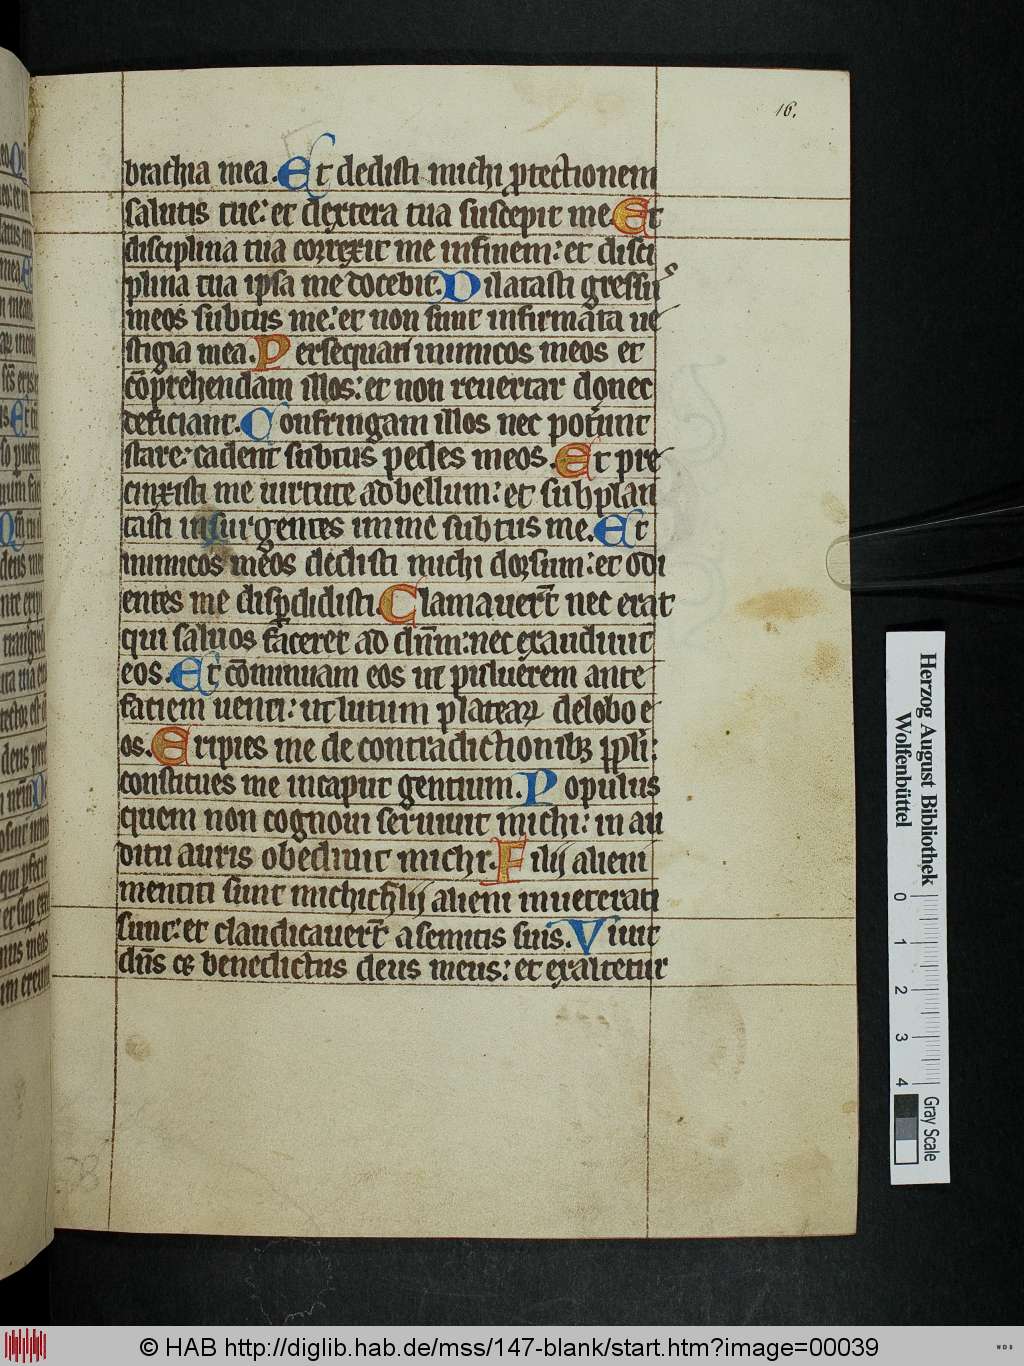 16.
brachia mea. Et dedisti michi ꝓtectionem
salutis tue: et dextera tua suscepit me. Et
disciplina tua correxit me infinem: et disci
plina tua ipsa me docebit. Dilatasti gressus
meos subtus me: et non sunt infirmata ue
stigia mea. Persequar inimicos meos et
cōprehendam illos: et non reuertar donec
deficiant. Confringam illos nec poterunt
stare: cadent subtus pedes meos. Et pre
cinxisti me uirtute adbellum: et subplan
tasti insurgentes inme subtus me. Et
inimicos meos dedisti michi dorsum: et odi
entes me disꝑdidisti. Clamauer̄t nec erat
qui saluos faceret ad dn̄m: nec exaudiuit
eos. Et cōminuam eos ut puluerem ante
faciem uenti: ut lutum plateaꝝ delebo e
os. Eripies me de contradictionibꝫ ppl̄i:
constitues me incaput gentium. Populus
quem non cognoui seruiuit michi: in au
ditu auris obediuit michi. Filij alieni
mentiti sunt michi: filij alieni inueterati
sunt: et claudicauer̄t asemitis suis. Viuit
dn̄s et benedictus deus meus: et exaltetur
Herzog August Bibliothek
Wolfenbüttel
0 1 2 3 4
Gray Scale
© HAB http://diglib.hab.de/mss/147-blank/start.htm?image=00039